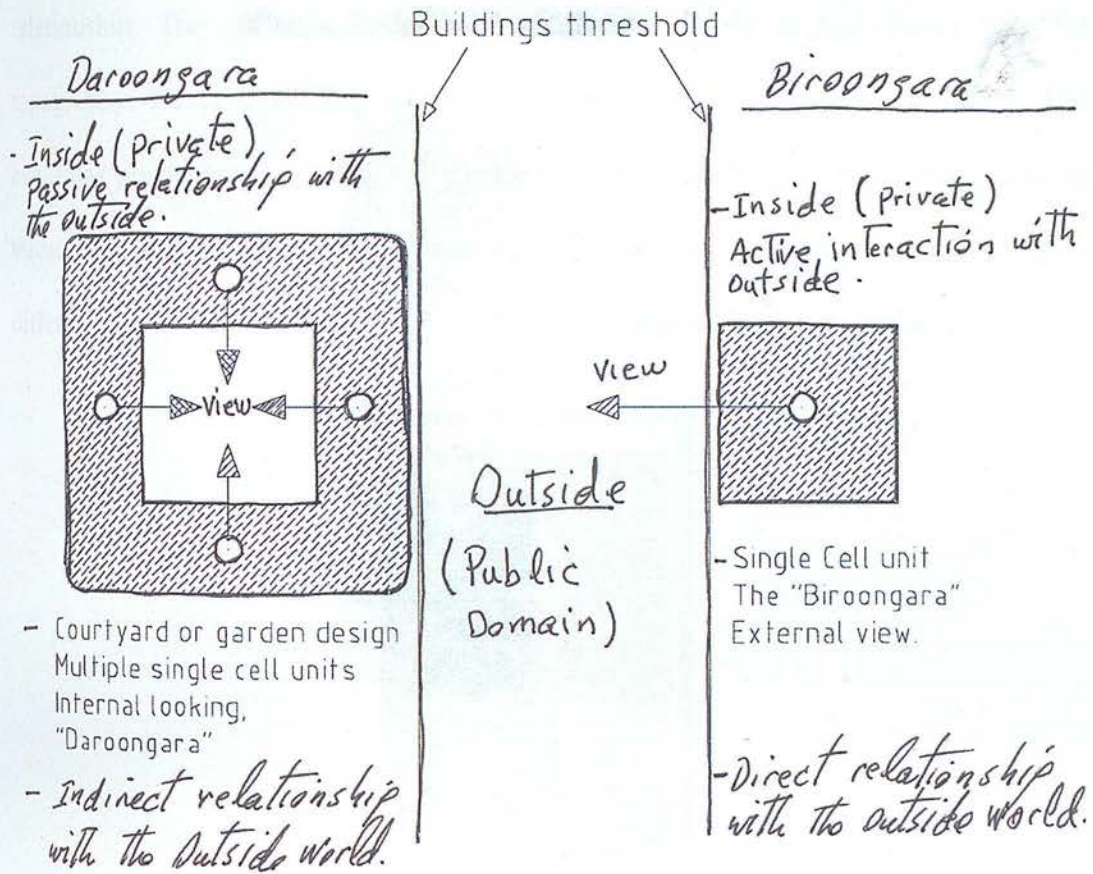 Buildings threshold
Daroongara
. Inside (private)
passive relationship with
the outside.
view
- Courtyard or garden design
Multiple single cell units
Internal looking,
"Daroongara"
- Indirect relationship
with the Outside world.
view
Outside
(Public
Domain)
Biroongara
- Inside (private)
Active interaction with
outside.
- Single Cell unit
The "Biroongara"
External view.
- Direct relationship
with the outside world.